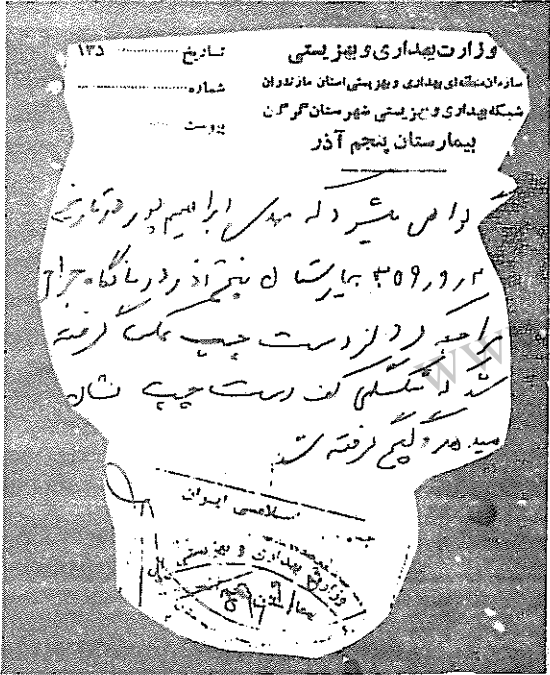 وزارت بهداری و بهزیستی
سازمان منطقه‌ای بهداری و بهزیستی استان مازندران
شبکه بهداری و بهزیستی شهرستان گرگان
بیمارستان پنجم آذر
تاریخ ۱۳۵
شماره
پیوست
گواهی میشود که مهدی ابراهیم پور در تاریخ
بیمارستان پنجم آذر درمانگاه جراحی
مراجعه کرد از دست چپ عکس گرفته
شد که شکستگی کف دست چپ نشان
میدهد و گچ گرفته شد
اسلامی ایران
وزارت بهداری و بهزیستی
WW